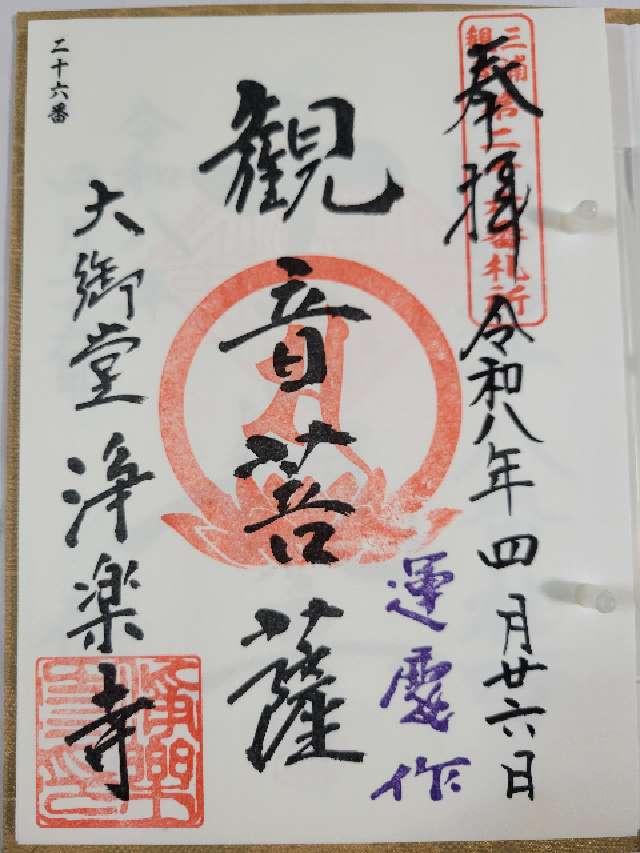 三浦第二十六番札所
奉拝 令和八年四月廿六日
運慶作
観音菩薩
大御堂 浄楽寺
二十六番